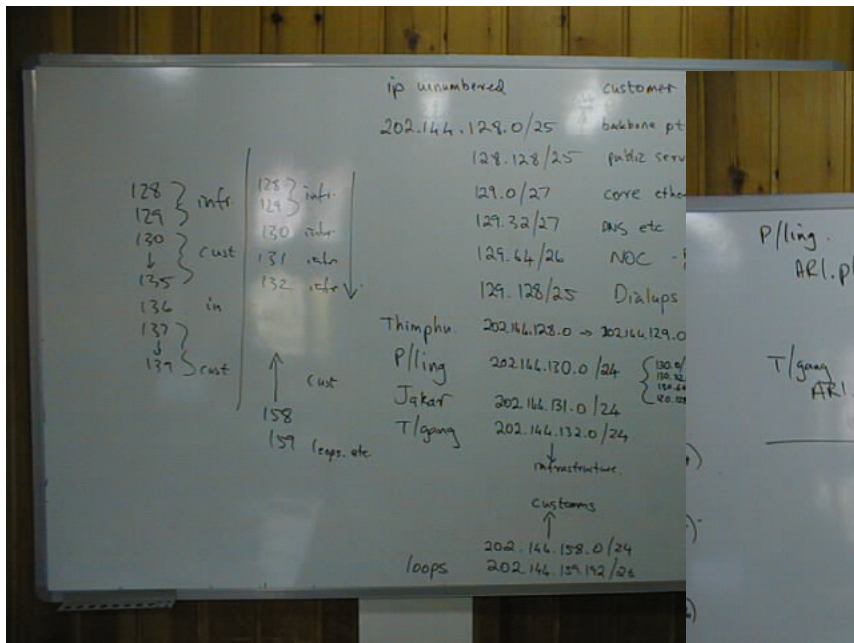 ip unnumbered customer
202.144.128.0/25 backbone pt
128.128/25 public serv
129.0/27 core ethe
129.32/27 DNS etc
129.64/26 NOC -
129.128/25 Dialups
Thimphu. 202.144.128.0 → 202.144.129.0
P/ling 202.144.130.0/24
Jakar 202.144.131.0/24
T/gang 202.144.132.0/24
↓
infrastructure.
customs
↑
202.144.158.0/24
loops 202.144.159.192/26
128
129
infr.
130
↓
135
cust
136 in
137
↓
139
cust
128
129
infr.
130 infr
131 infr
132 infr
↑
cust
158
159 loops.etc.
P/ling.
AR1.p/
T/gang
AR1.